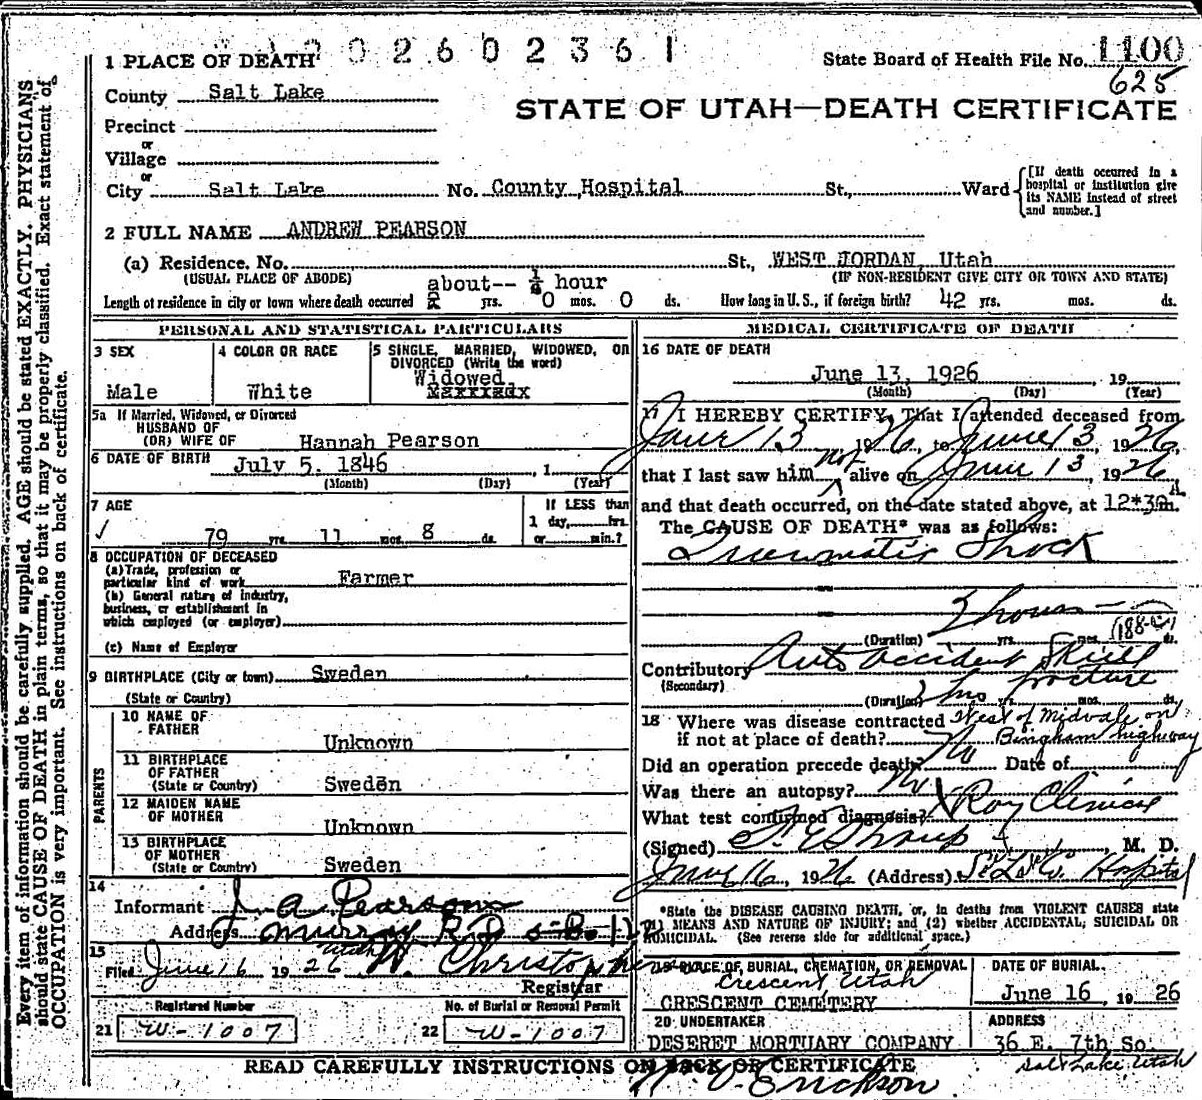 2602361
1 PLACE OF DEATH
State Board of Health File No. 1100
625
County Salt Lake
STATE OF UTAH—DEATH CERTIFICATE
Precinct
or
Village
or
City Salt Lake No. County Hospital St., Ward
[If death occurred in a hospital or institution give its NAME instead of street and number.]
2 FULL NAME ANDREW PEARSON
(a) Residence. No. St., WEST JORDAN, Utah
(USUAL PLACE OF ABODE) (IF NON-RESIDENT GIVE CITY OR TOWN AND STATE)
about-- hour
Length of residence in city or town where death occurred yrs. 0 mos. 0 ds. How long in U. S., if foreign birth? 42 yrs. mos. ds.
PERSONAL AND STATISTICAL PARTICULARS
3 SEX
Male
4 COLOR OR RACE
White
5 SINGLE, MARRIED, WIDOWED, OR
DIVORCED (Write the word)
Widowed
5a If Married, Widowed, or Divorced
HUSBAND OF
(OR) WIFE OF Hannah Pearson
6 DATE OF BIRTH July 5. 1846 , 1
(Month) (Day) (Year)
7 AGE
79 yrs. 11 mos. 8 ds.
If LESS than
1 day, hrs.
or min.?
8 OCCUPATION OF DECEASED
(a) Trade, profession or
particular kind of work Farmer
(b) General nature of industry,
business, or establishment in
which employed (or employer)
(c) Name of Employer
9 BIRTHPLACE (City or town) Sweden
(State or Country)
PARENTS
10 NAME OF
FATHER
Unknown
11 BIRTHPLACE
OF FATHER
(State or Country) Sweden
12 MAIDEN NAME
OF MOTHER
Unknown
13 BIRTHPLACE
OF MOTHER
(State or Country) Sweden
14
Informant J. A. Pearson
Address Murray R.D 5-B-12
Utah
15
Filed June 16 1926 W. Christopherson
Registrar
Registered Number
21 W-1007
No. of Burial or Removal Permit
22 W-1007
MEDICAL CERTIFICATE OF DEATH
16 DATE OF DEATH
June 13, 1926 , 19
(Month) (Day) (Year)
17 I HEREBY CERTIFY, That I attended deceased from
June 13 1926, to June 13 1926,
that I last saw him not alive on June 13, 1926
and that death occurred, on the date stated above, at 12*30 A m.
The CAUSE OF DEATH* was as follows:
Traumatic Shock
2 hours
(Duration) yrs. mos. ds.
(188-c)
Contributory Auto accident Skull
fracture
(Secondary)
(Duration) 2 hrs yrs. mos. ds.
18 Where was disease contracted West of Midvale on
if not at place of death? Bingham highway
Did an operation precede death? No Date of
Was there an autopsy? No
What test confirmed diagnosis? Xray Clinical
(Signed) , M. D.
June 16, 1926 (Address) St. L. Co. Hospital
*State the DISEASE CAUSING DEATH, or, in deaths from VIOLENT CAUSES state
(1) MEANS AND NATURE OF INJURY; and (2) whether ACCIDENTAL, SUICIDAL OR
HOMICIDAL. (See reverse side for additional space.)
19 PLACE OF BURIAL, CREMATION, OR REMOVAL
Crescent Utah
CRESCENT CEMETERY
DATE OF BURIAL.
June 16, 1926
20 UNDERTAKER
DESERET MORTUARY COMPANY
ADDRESS
36 E. 7th So.
Salt Lake, Utah
READ CAREFULLY INSTRUCTIONS ON BACK OF CERTIFICATE
Erickson
Every item of information should be carefully supplied. AGE should be stated EXACTLY. PHYSICIANS
should state CAUSE OF DEATH in plain terms, so that it may be properly classified. Exact statement of
OCCUPATION is very important. See instructions on back of certificate.